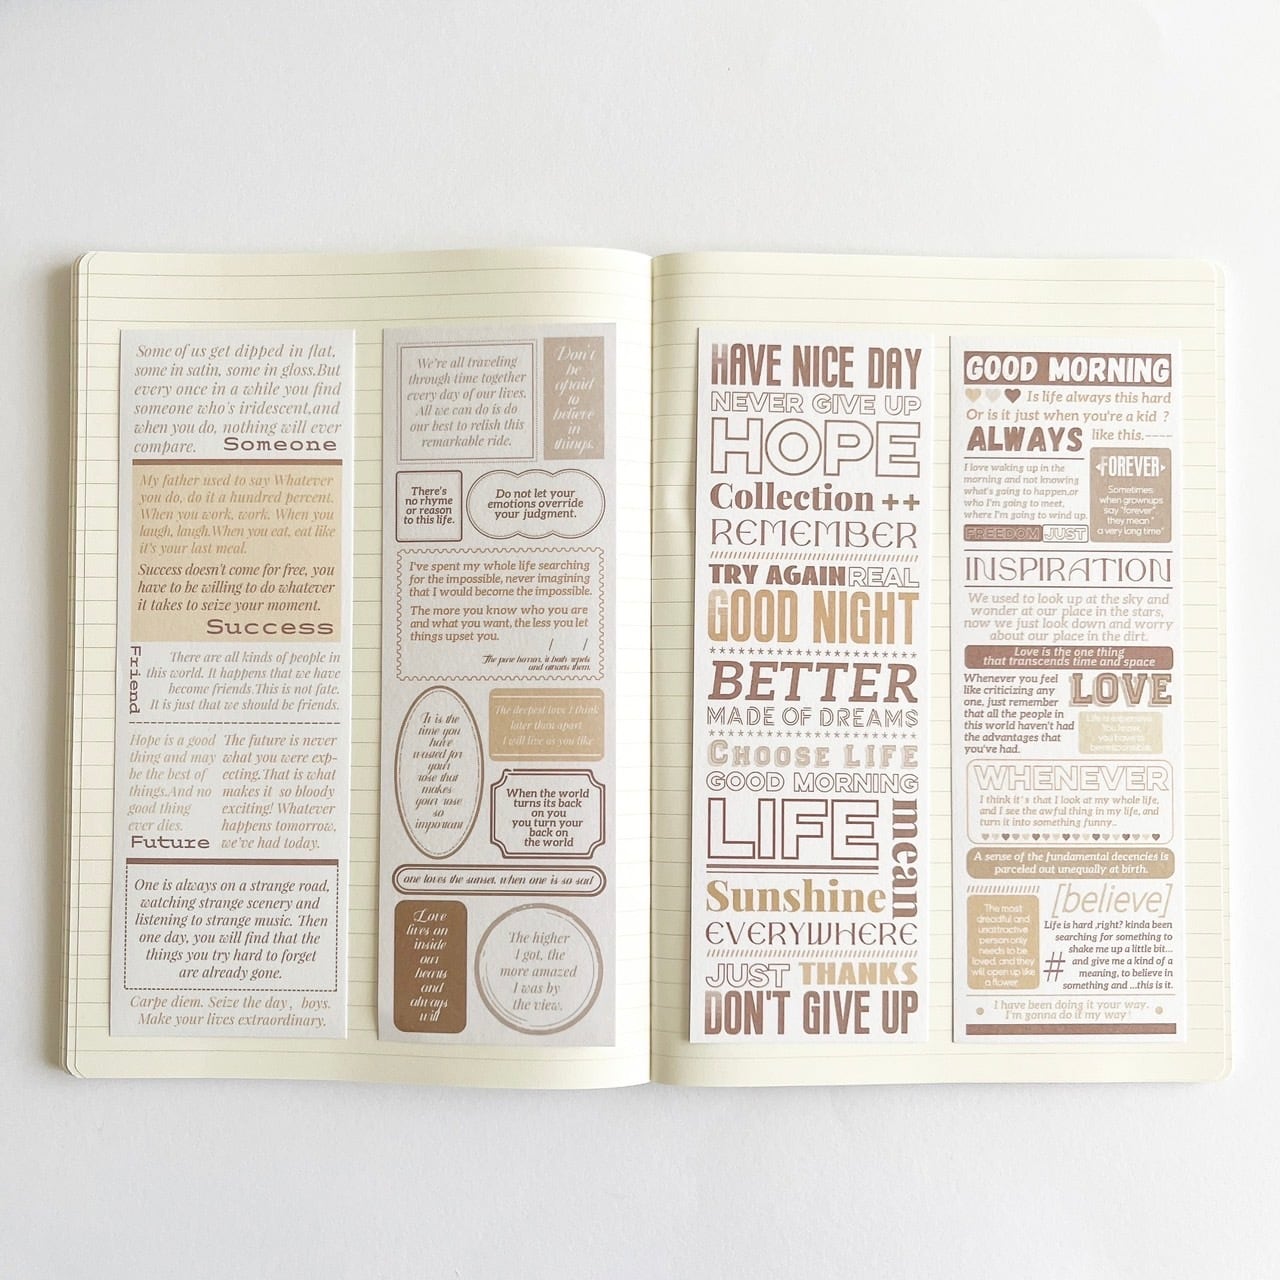 Some of us get dipped in flat,
some in satin, some in gloss.But
every once in a while you find
someone who's iridescent,and
when you do, nothing will ever
compare.
Someone
My father used to say Whatever
you do, do it a hundred percent.
When you work, work. When you
laugh, laugh.When you eat, eat like
it's your last meal.
Success doesn't come for free, you
have to be willing to do whatever
it takes to seize your moment.
Success
Friend
There are all kinds of people in
this world. It happens that we have
become friends.This is not fate.
It is just that we should be friends.
Hope is a good
thing and may
be the best of
things.And no
good thing
ever dies.
Future
The future is never
what you were exp-
ecting.That is what
makes it so bloody
exciting! Whatever
happens tomorrow,
we've had today.
One is always on a strange road,
watching strange scenery and
listening to strange music. Then
one day, you will find that the
things you try hard to forget
are already gone.
Carpe diem. Seize the day, boys.
Make your lives extraordinary.
We're all traveling
through time together
every day of our lives.
All we can do is do
our best to relish this
remarkable ride.
Don't
be
afraid
to
believe
in
things.
There's
no rhyme
or reason
to this life.
Do not let your
emotions override
your judgment.
I've spent my whole life searching
for the impossible, never imagining
that I would become the impossible.
The more you know who you are
and what you want, the less you let
things upset you.
/ /
The pure human, it both repels
and attracts them.
It is the
time you
have
wasted for
your
rose that
makes
your rose
so
important
The deepest love I think
later than apart
I will live as you like
When the world
turns its back
on you
you turn your
back on
the world
one loves the sunset, when one is so sad
Love
lives on
inside
our
hearts
and
always
will
The higher
I got, the
more amazed
I was by
the view.
HAVE NICE DAY
NEVER GIVE UP
HOPE
Collection ++
REMEMBER
TRY AGAIN REAL
GOOD NIGHT
BETTER
MADE OF DREAMS
CHOOSE LIFE
GOOD MORNING
LIFE
mean
Sunshine
EVERYWHERE
JUST THANKS
DON'T GIVE UP
GOOD MORNING
Is life always this hard
Or is it just when you're a kid ?
ALWAYS like this.----
I love waking up in the
morning and not knowing
what's going to happen,or
who I'm going to meet,
where I'm going to wind up.
FREEDOM JUST
FOREVER
Sometimes
when grownups
say "forever",
they mean "
a very long time"
INSPIRATION
We used to look up at the sky and
wonder at our place in the stars,
now we just look down and worry
about our place in the dirt.
Love is the one thing
that transcends time and space
Whenever you feel
like criticizing any
one, just remember
that all the people in
this world haven't had
the advantages that
you've had.
LOVE
Life is expensive
You know,
you have to
be responsible.
WHENEVER
I think it's that I look at my whole life,
and I see the awful thing in my life, and
turn it into something funny..
A sense of the fundamental decencies is
parceled out unequally at birth.
The most
dreadful and
unattractive
person only
needs to be
loved, and they
will open up like
a flower.
[believe]
Life is hard ,right? kinda been
searching for something to
shake me up a little bit...
# and give me a kind of a
meaning, to believe in
something and ...this is it.
I have been doing it your way.
I'm gonna do it my way!